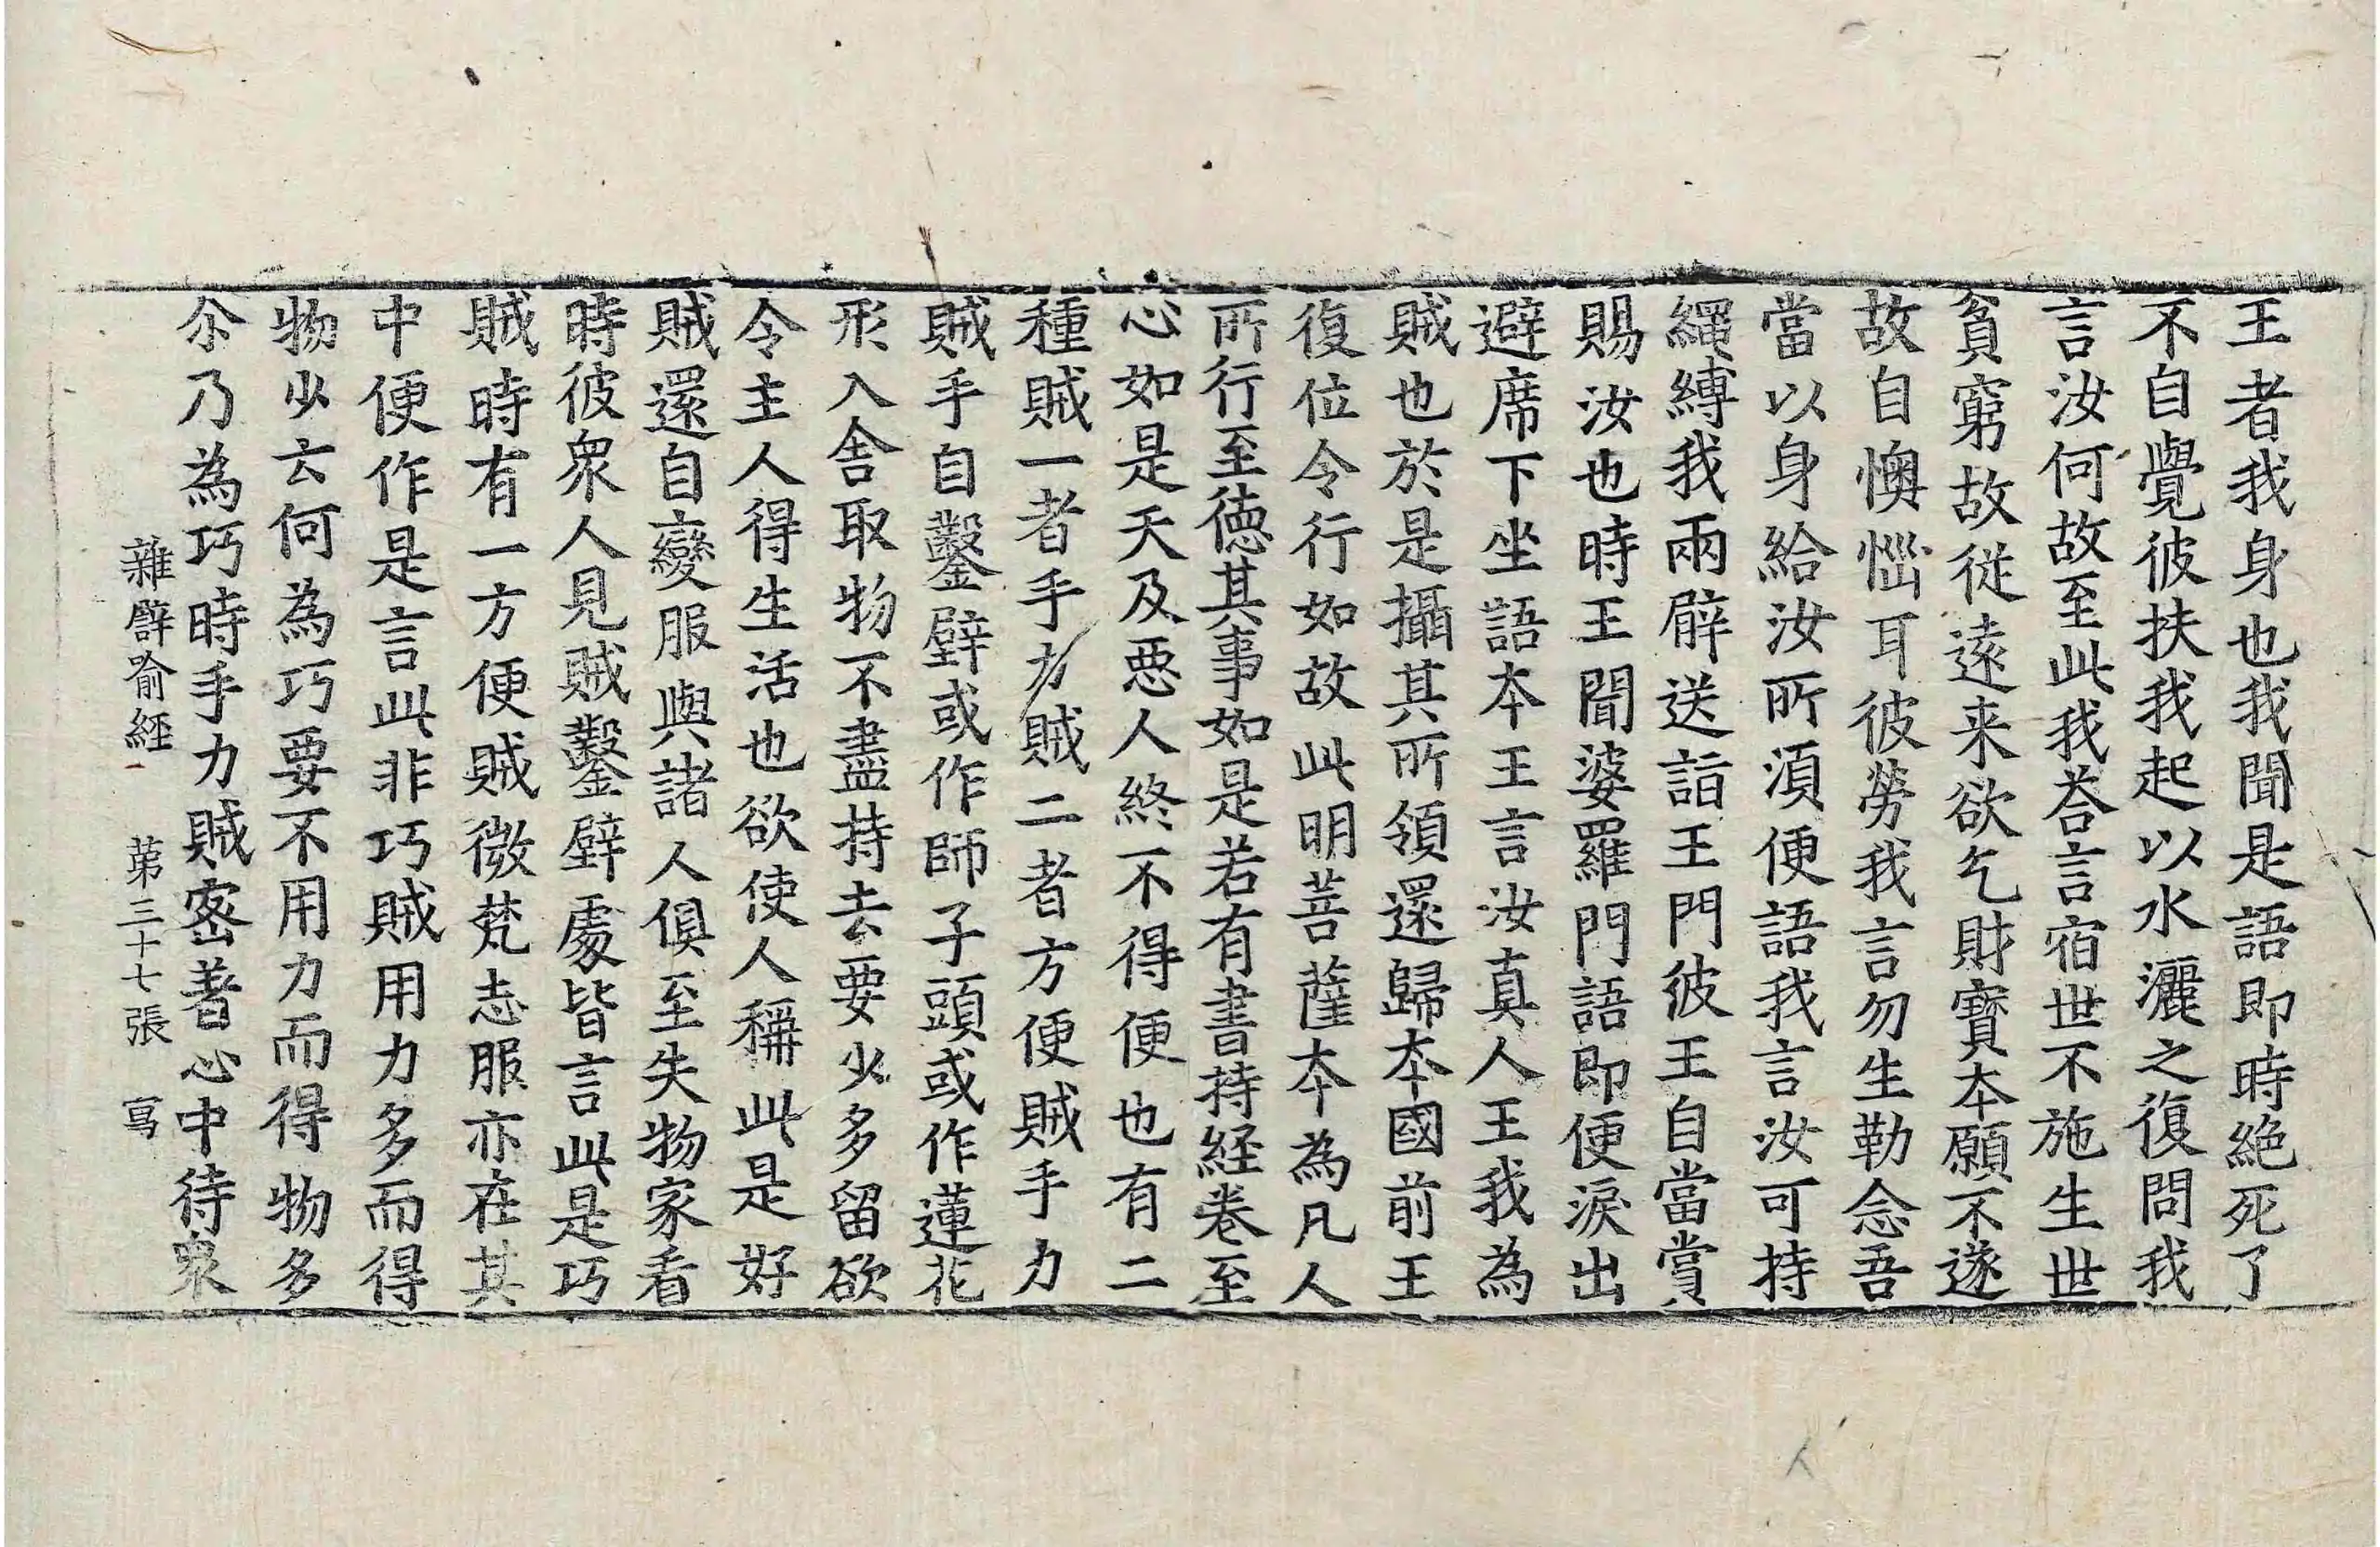 王者我身也我聞是語即時絶死了
不自覺彼扶我起以水灑之復問我
言汝何故至此我荅言宿世不施生世
貧窮故從遠来欲乞財寶本願不遂
故自懊惱耳彼勞我言勿生勒念吾
當以身給汝所湏便語我言汝可持
繩縛我兩臂送詣王門彼王自當賞
賜汝也時王聞婆羅門語即便淚出
避席下坐語本王言汝真人王我為
賊也於是攝其所領還歸本國前王
復位令行如故此明菩薩本為凡人
所行至徳其事如是若有書持経卷至
心如是天及惡人終不得便也有二
種賊一者手力賊二者方便賊手力
賊手自鑿壁或作師子頭或作蓮花
形入舍取物不盡持去要少多留欲
令主人得生活也欲使人稱此是好
賊還自變服與諸人俱至失物家看
時彼衆人見賊鑿壁處皆言此是巧
賊時有一方便賊微梵志服亦在其
中便作是言此非巧賊用力多而得
物少云何為巧要不用力而得物多
尒乃為巧時手力賊密著心中待衆
雜譬喻経 第三十七張 寫